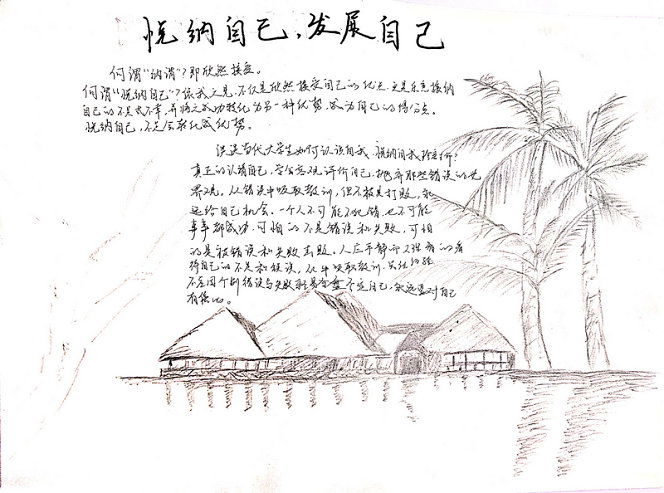 悦纳自己，发展自己
何谓"讷谓"？即欣然接受。
何谓"悦纳自己"？依我之见，不仅是欣然接受自己的优点，更是乐意接纳
自己的不足或不幸，并将之成功转化为另一种优势，成为自己的得分点。
悦纳自己，不足会转化成优势。
谈谈当代大学生如何认识自我、悦纳自我
真正的认清自己，学会客观评价自己，摒弃那些错误的世
界观，从错误中吸取教训，但不被其打败，永
远给自己机会。一个人不可能不犯错，也不可能
事事都成功，可怕的不是错误和失败，可怕
的是被错误和失败击败。人应平静而又理智的看
待自己的不足和错误，从中吸取教训
不应因个别错误与失败就全盘否定自己，永远要对自己
有信心。